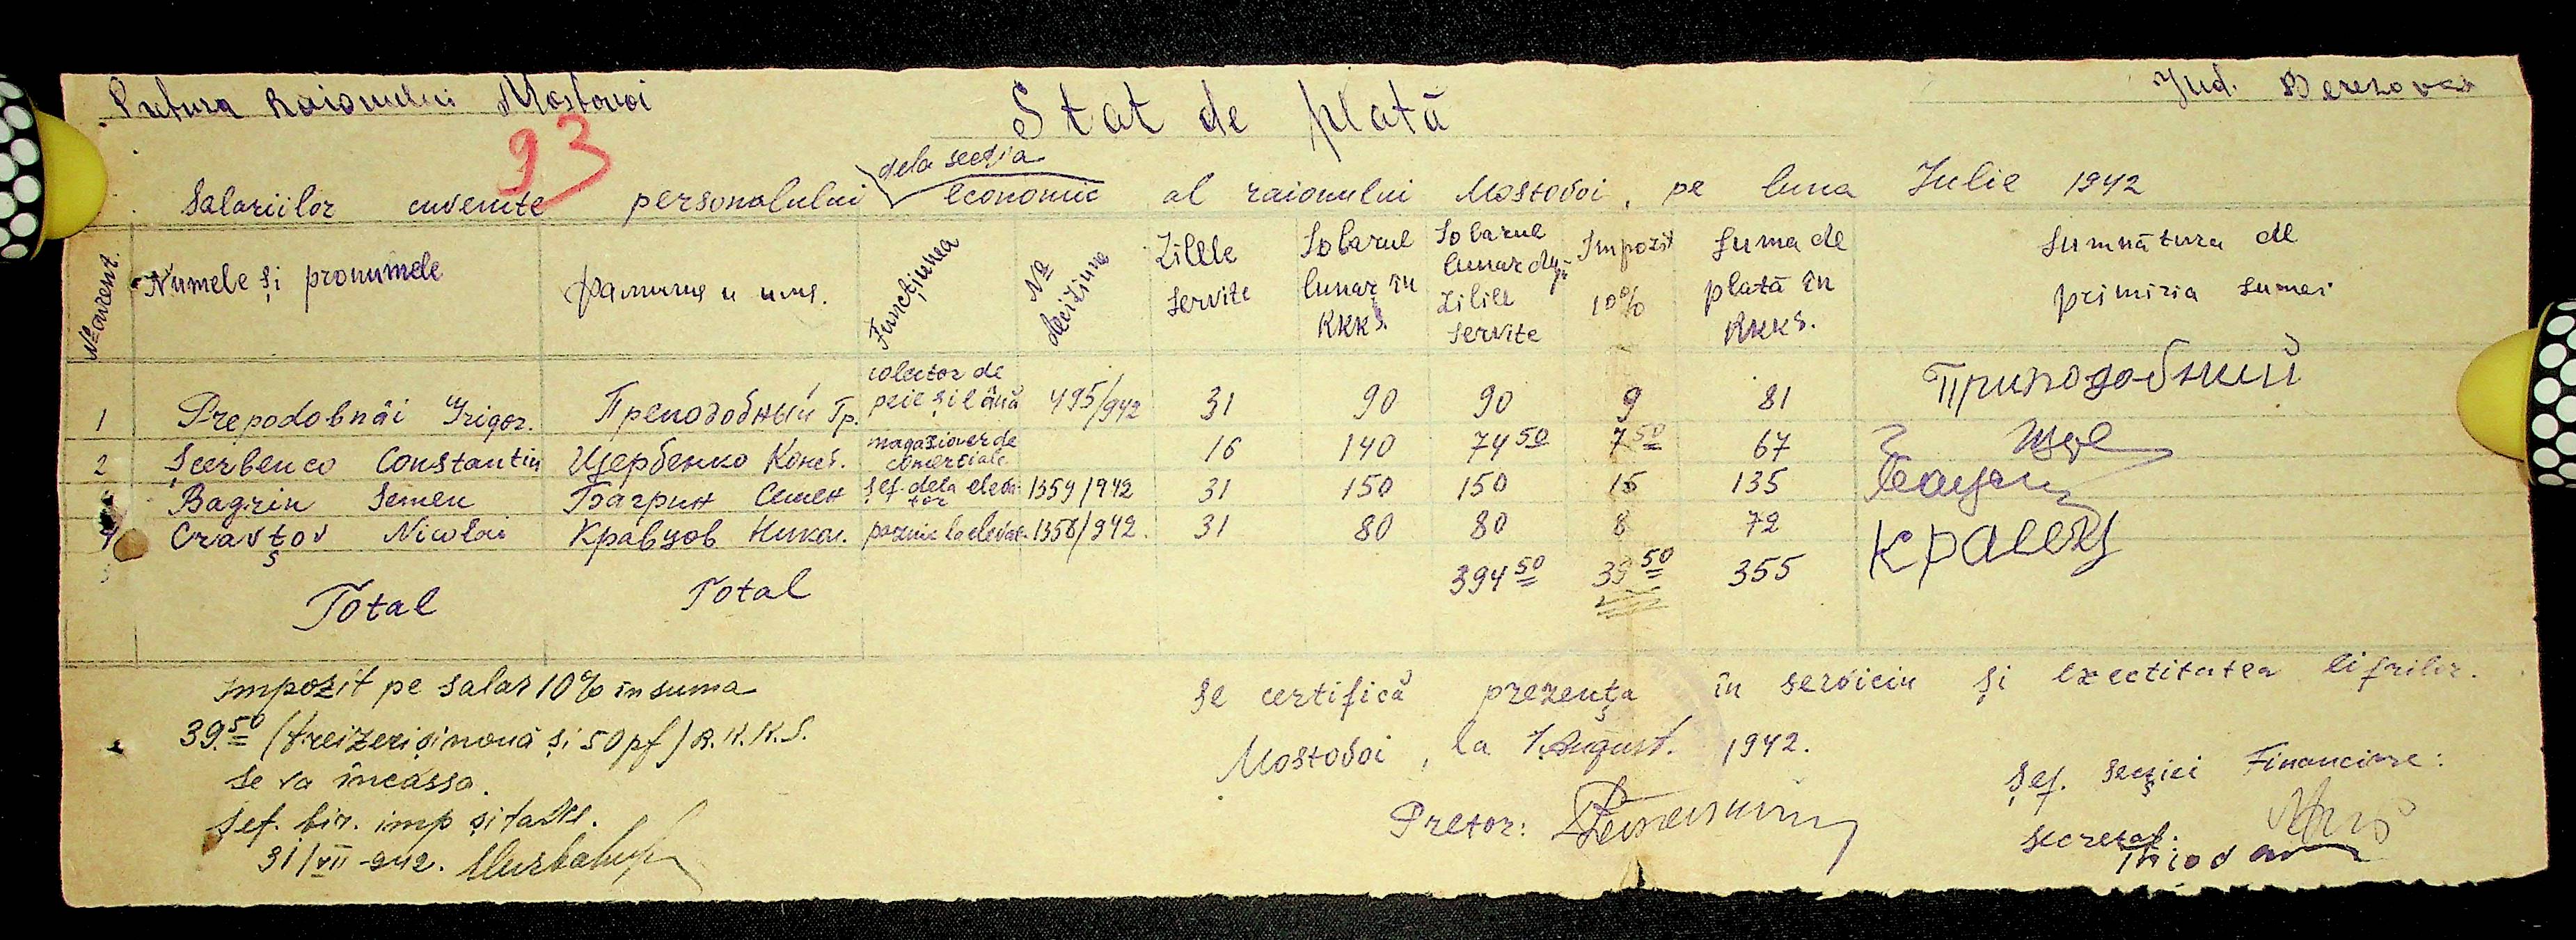 Pretura Raionului Mostovoi
Jud. Berezovca
Stat de plată
93
dela secția
Salariilor cuvenite personalului economic al raionului Mostovoi, pe luna Iulie 1942
№ curent. Numele și pronumele Фамилия и имя. Funcțiunea № deciziune Zilele servite Sobarul lunar în RKKS. Sobarul lunar dupe zilile servite Impozit 10% Suma de plată în RKKS. Sumnătura de primiria sumei
1 Prepodobnâi Grigor. Преподобный Гр. colector de peie și lână 495/942 31 90 90 9 81 Приподобний
2 Șcerbenco Constantin Щербенко Конст. magazioner de comerciale 16 140 74 50 7 50 67
Bagrin Semen Багрин Семен șef. dela elevator 1359/942 31 150 150 15 135
4 Cravțov Nicolai Кравцов Никол. paznic la elevat. 1358/942. 31 80 80 8 72 Кравец
Total Total 394 50 39 50 355
Impozit pe salar 10% în suma
39.50 (treizeci și nouă și 50 pf) R.K.K.S.
se va încassa.
Șef. bir. imp și taxe.
31/VII-942.
Se certifică prezența în serviciu și exectitatea cifrilor.
Mostovoi, la 1 August. 1942.
Pretor:
Șef. Secției Financiare:
Secretar.